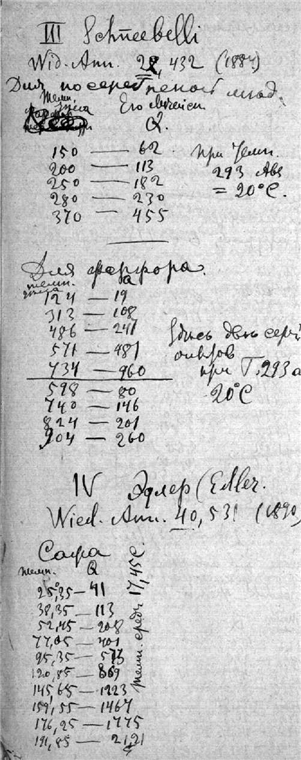 III Schneebelli
Wid. Ann. 22, 432 (1884)
Для посеребренной
темп.
Его
Q.
150 — 62
200 — 113
250 — 182
280 — 230
370 — 455
при темп.
293 Abs
= 20°C.
Для фарфора.
темп. Q
124 — 19
313 — 108
486 — 241
571 — 481
734 — 960
598 — 80
740 — 146
824 — 201
904 — 260
Здесь две серии
опытов
при T. 293 a
20°C
IV Эдлер (Edler.
Wied. Ann. 40, 531 (1890)
Сажа
темп. Q
25,35 — 41
38,35 — 113
52,45 — 208
77,05 — 401
95,35 — 573
120,85 — 869
145,65 — 1223
159,55 — 1467
176,25 — 1775
191,85 — 2121
темп. среды 17,45 C